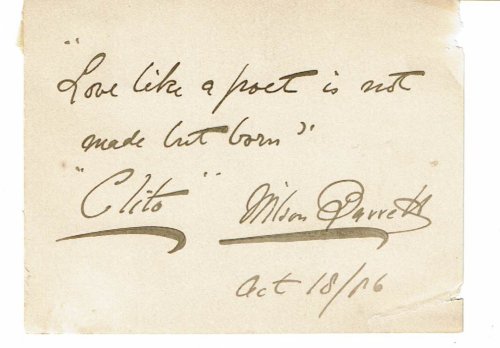 "Love like a poet is not
made but born"
"Clito" Wilson Barrett
Oct 18/86